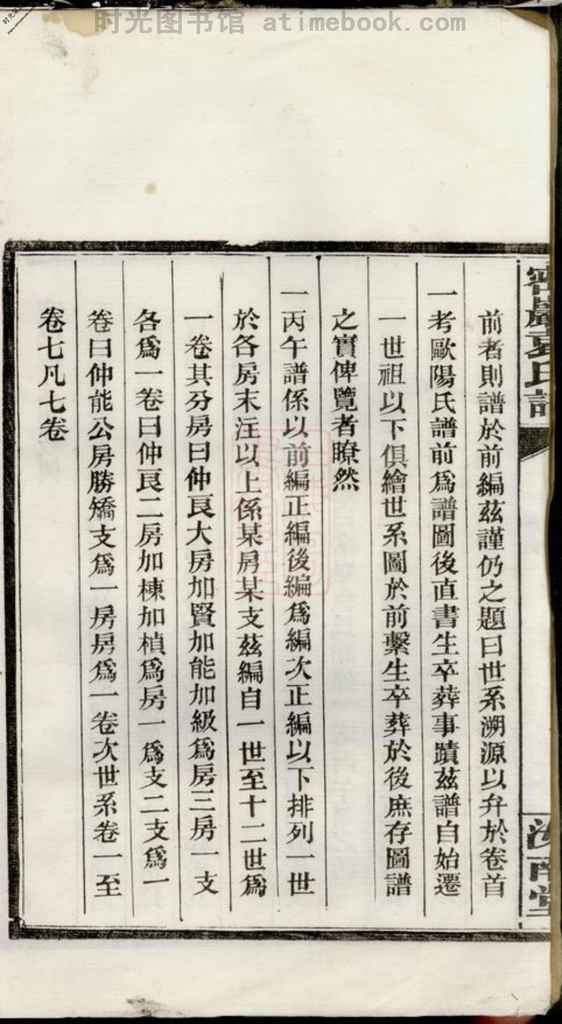 时光图书馆 atimebook.com
前者則譜於前編茲謹仍之題曰世系溯源以弁於卷首
一考歐陽氏譜前爲譜圖後直書生卒葬事蹟茲譜自始遷
一世祖以下俱繪世系圖於前繫生卒葬於後庶存圖譜
之實俾覽者瞭然
一丙午譜係以前編正編後編爲編次正編以下排列一世
於各房末注以上係某房某支茲編自一世至十二世爲
一卷其分房曰仲良大房加賢加能加級爲房三房一支
各爲一卷曰仲良二房加棟加楨爲房一爲支二支爲一
卷曰仲能公房勝矯支爲一房房爲一卷次世系卷一至
卷七凡七卷